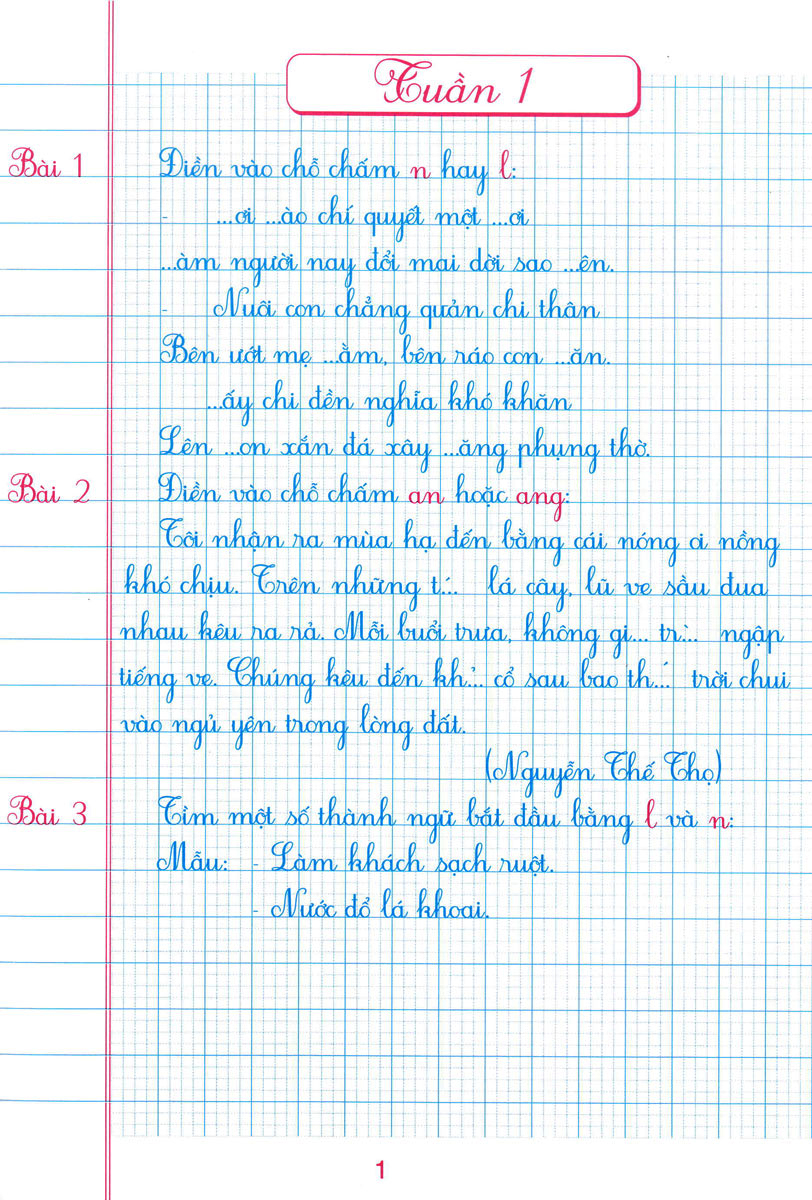 Tuần 1
Bài 1 Điền vào chỗ chấm n hay l:
- ...ơi ...ào chí quyết một ...ơi
...àm người nay đổi mai dời sao ...ên.
- Nuôi con chẳng quản chi thân
Bên ướt mẹ ...ằm, bên ráo con ...ăn.
...ấy chi đền nghĩa khó khăn
Lên ...on xắn đá xây ...ăng phụng thờ.
Bài 2 Điền vào chỗ chấm an hoặc ang:
Tôi nhận ra mùa hạ đến bằng cái nóng ơi nồng
khó chịu. Trên những t... lá cây, lũ ve sầu đua
nhau kêu ra rả. Mỗi buổi trưa, không gi... tr... ngập
tiếng ve. Chúng kêu đến kh... cổ sau bao th... trời chui
vào ngủ yên trong lòng đất.
(Nguyễn Thế Thọ)
Bài 3 Tìm một số thành ngữ bắt đầu bằng l và n:
Mẫu: - Làm khách sạch ruột.
- Nước đổ lá khoai.
1